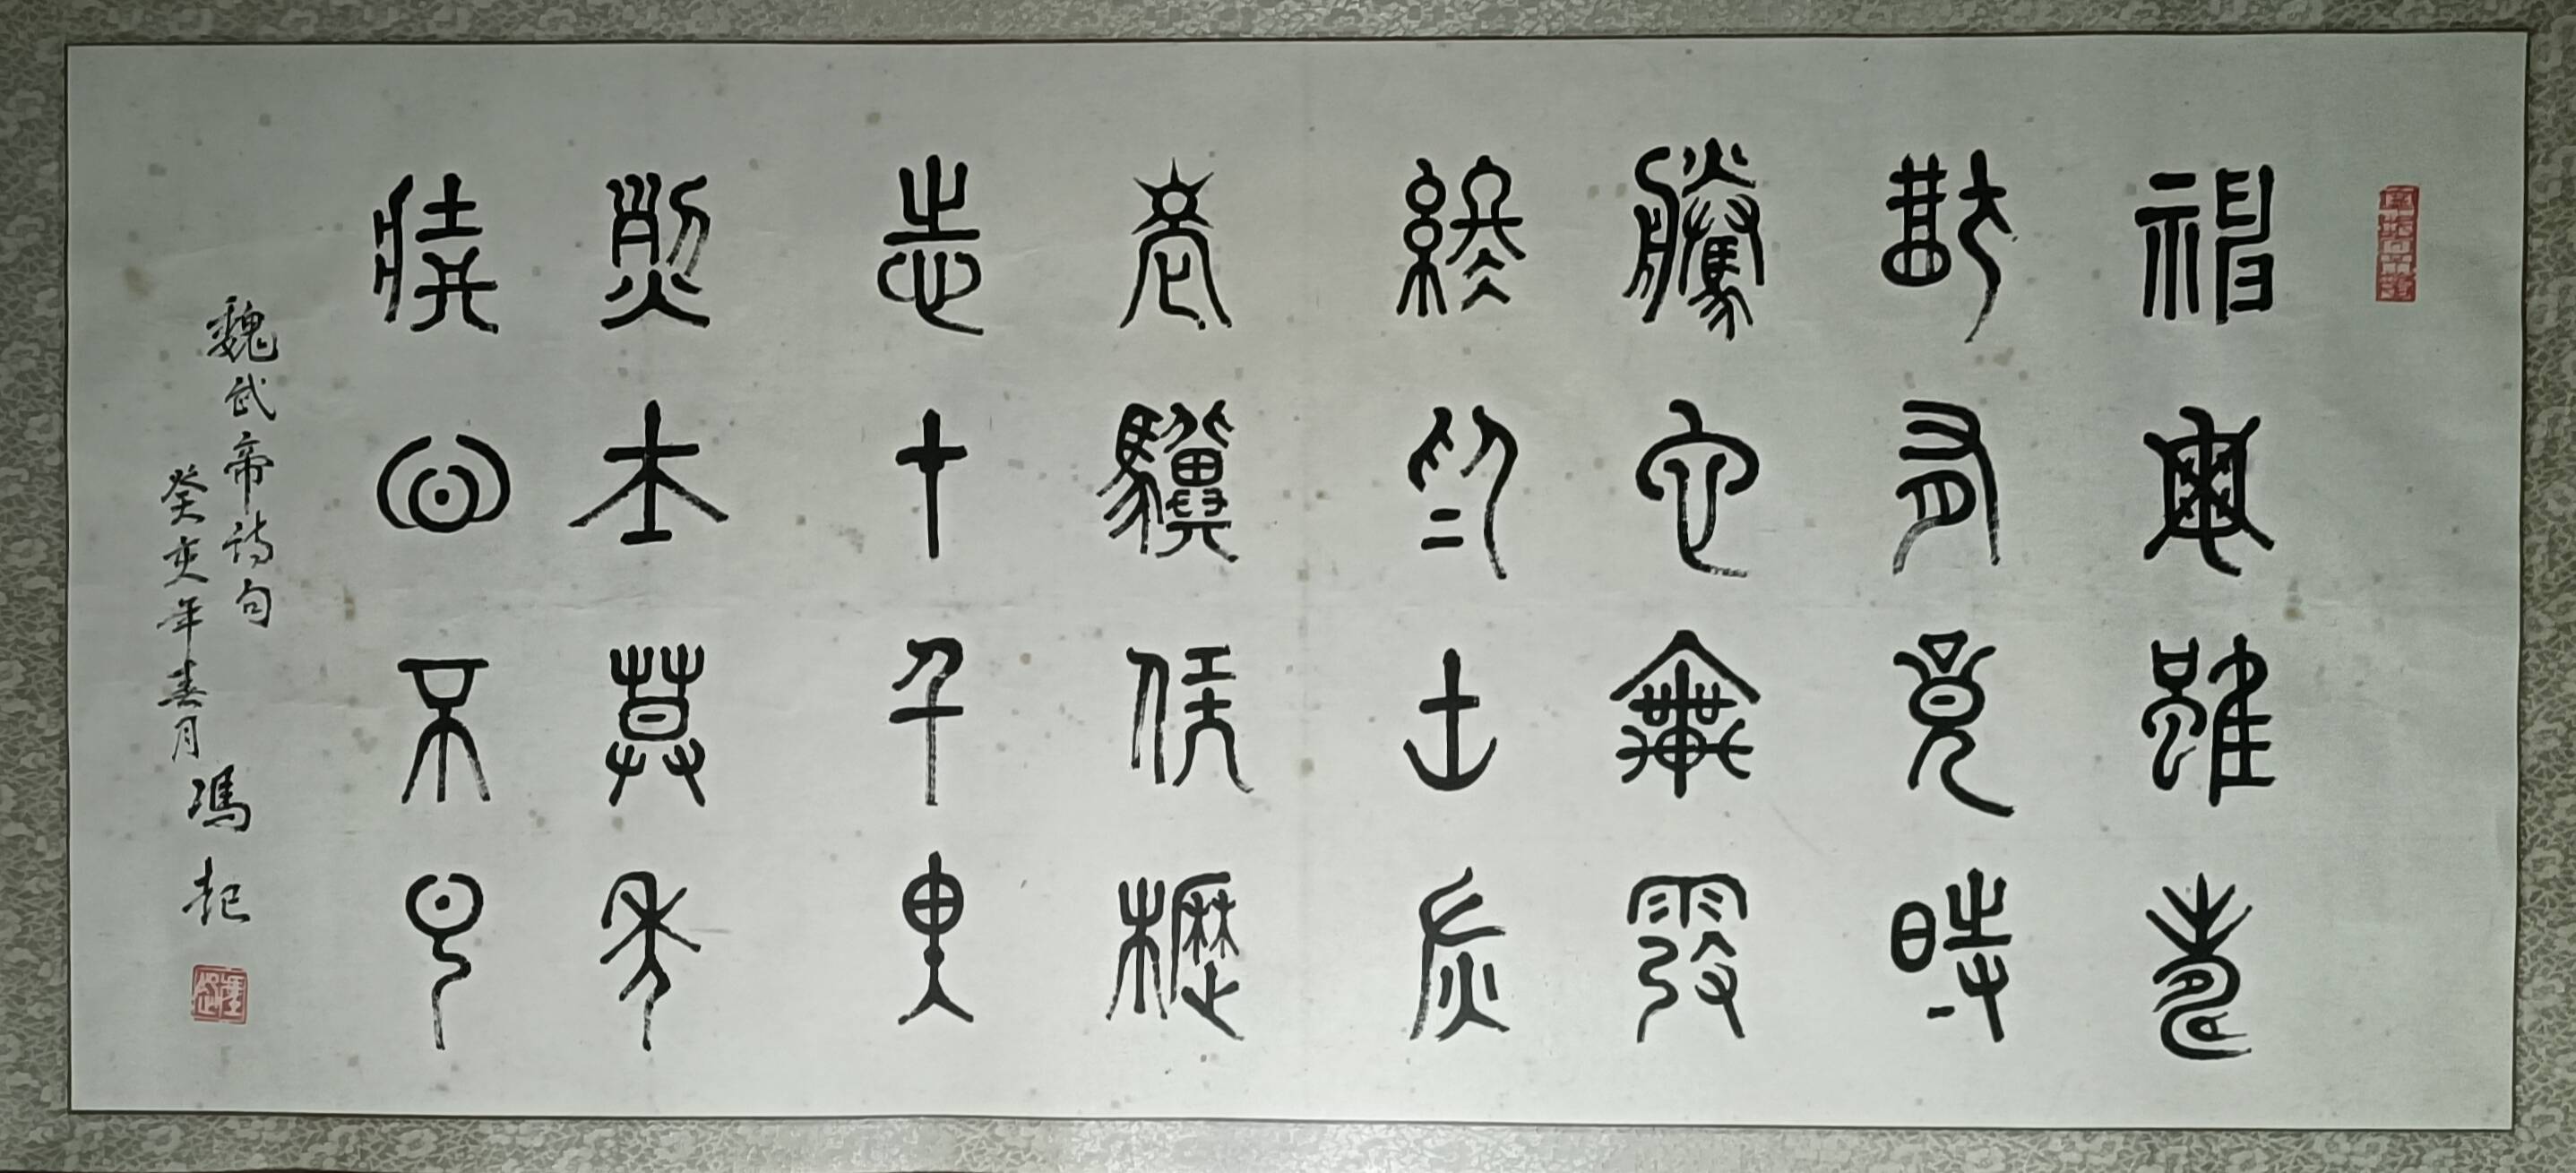 神龜雖壽
猶有竟時
騰蛇乘霧
終為土灰
老驥伏櫪
志在千里
烈士暮年
壯心不已
魏武帝詩句
癸亥年春月
馮起